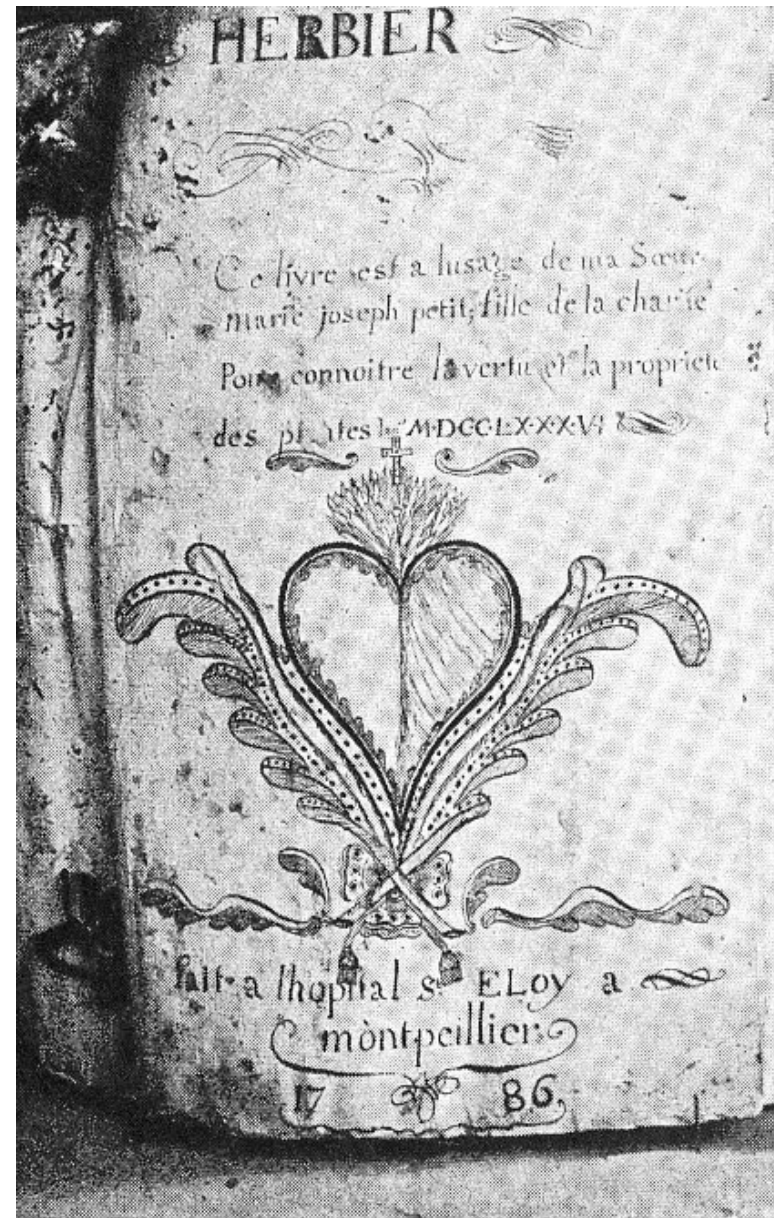 HERBIER
Ce livre est a lusage de ma Sœur
marie joseph petit, fille de la charie
Pour connoitre la vertu et la propriete
des plantes M·DCC·L·X·X·X·VI
fait a lhopital St ELoy a
montpeillier
17 86.